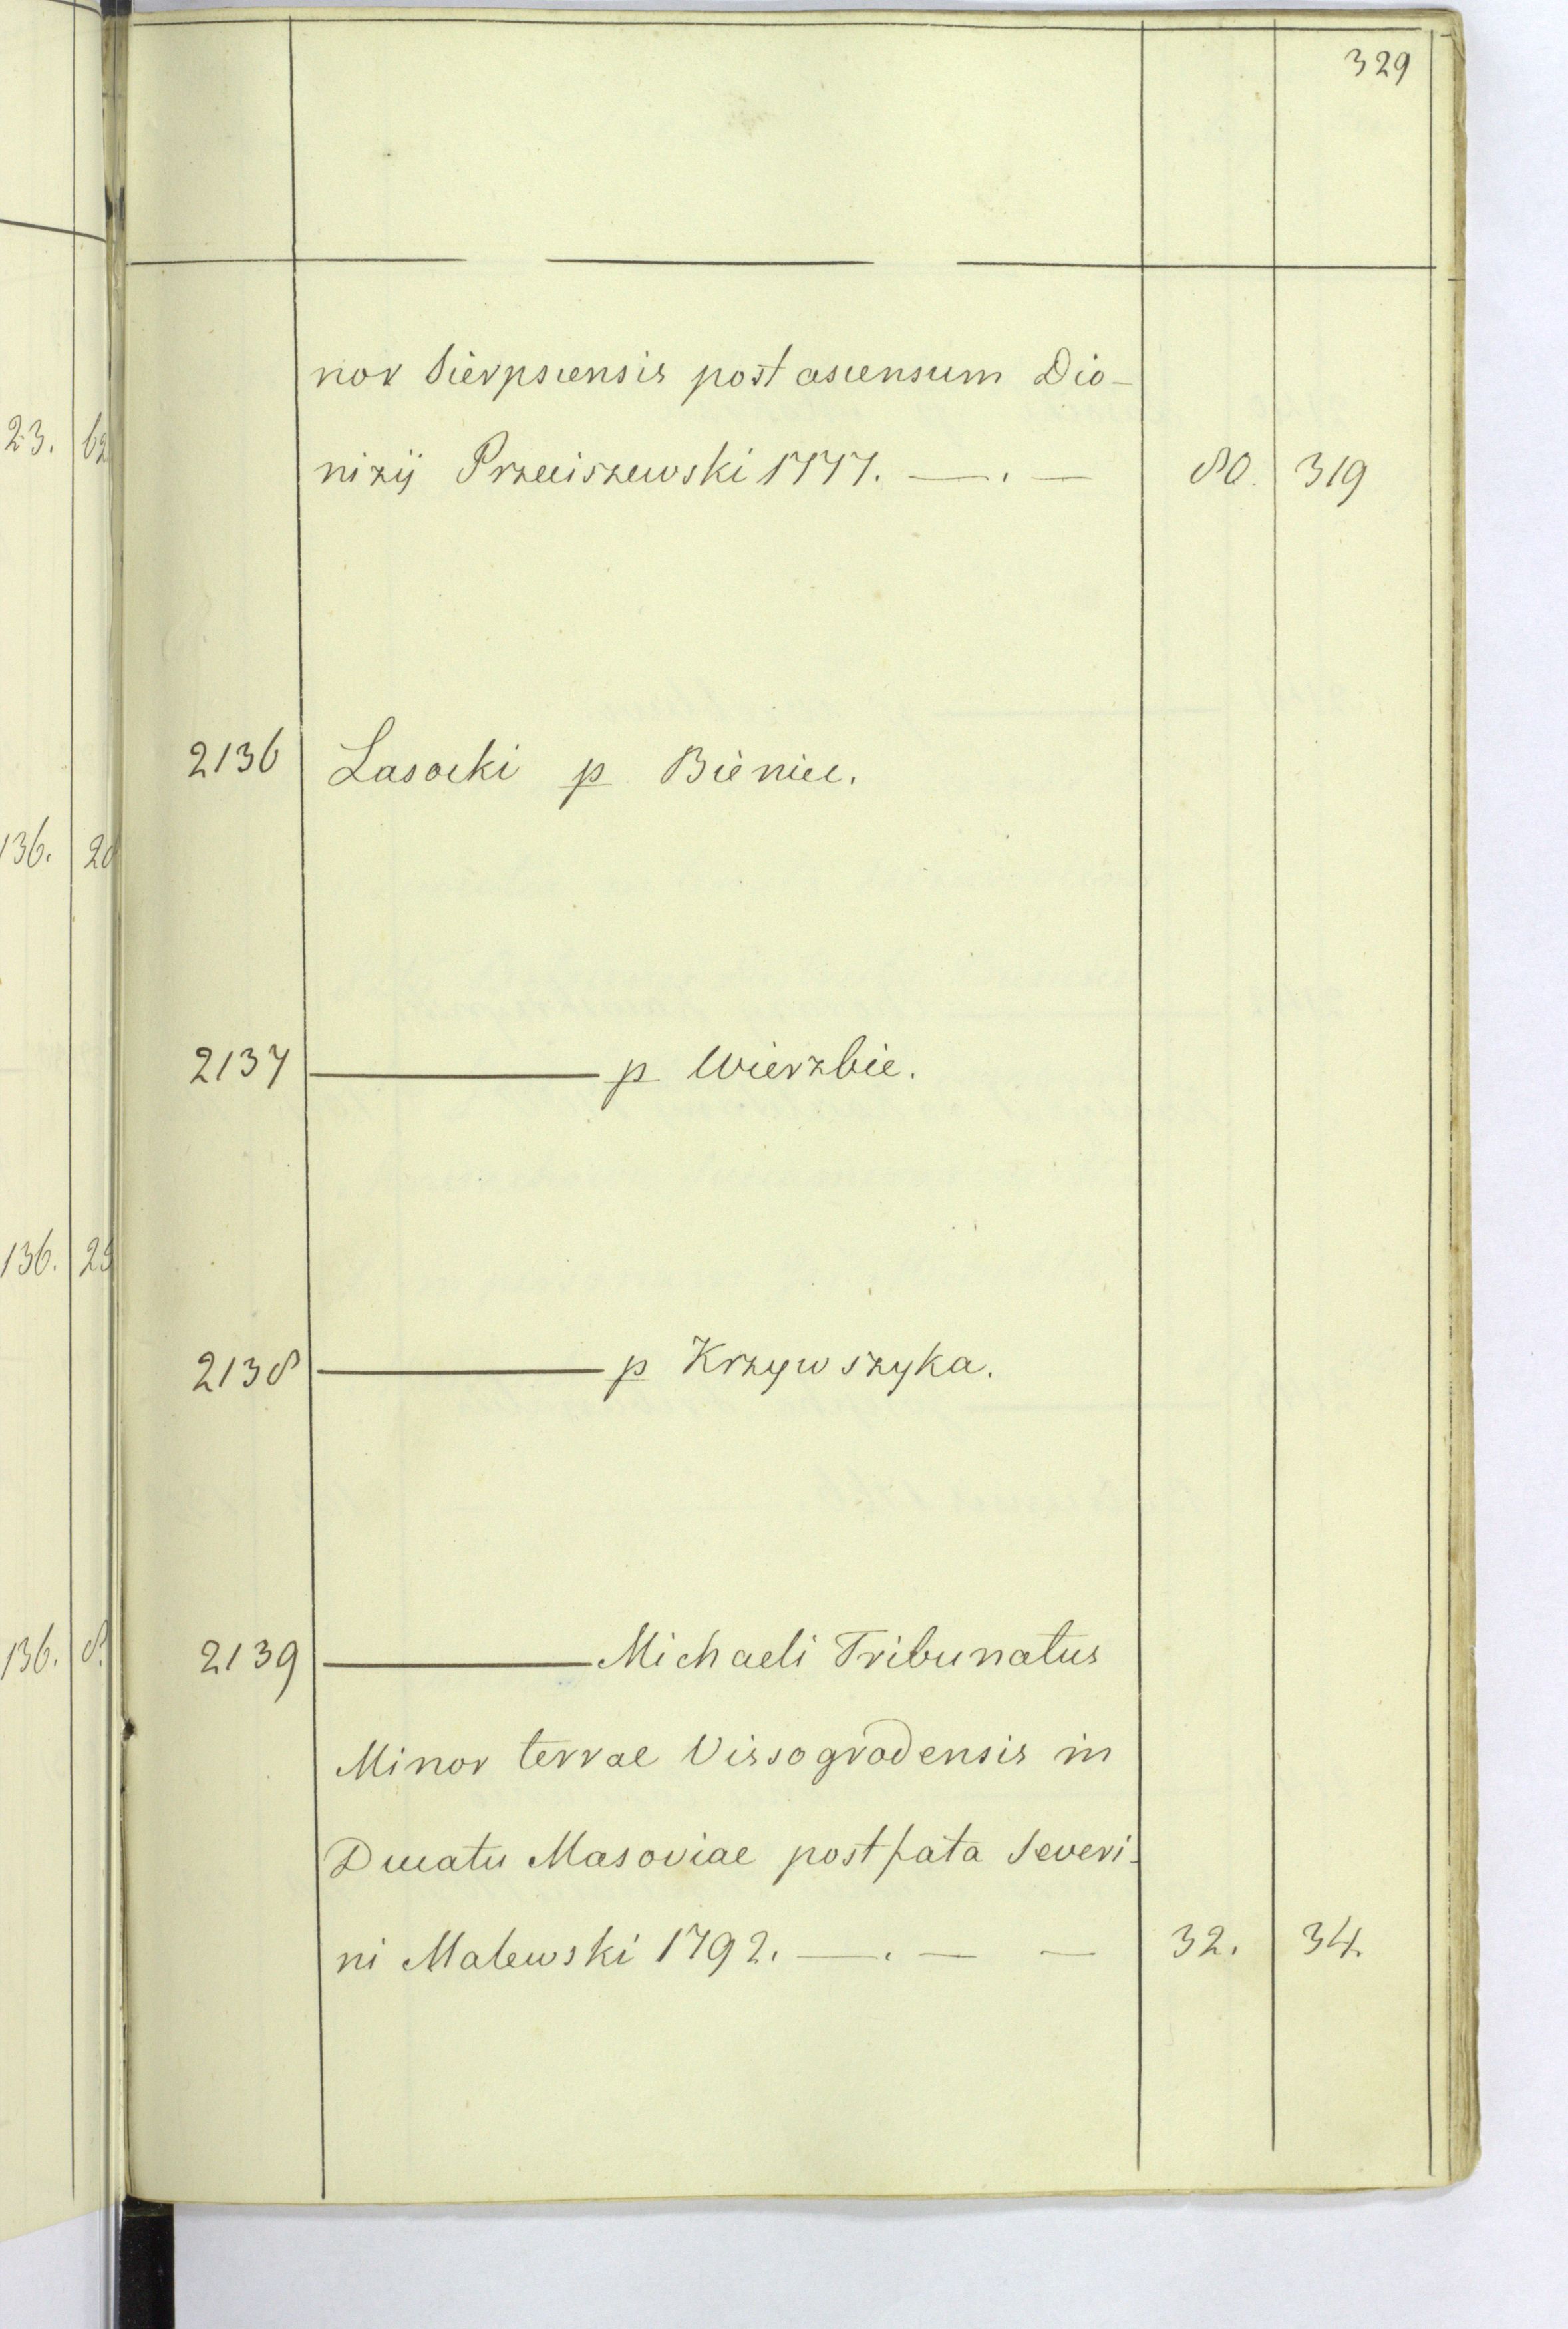 329
nor Sierpscensis post ascensum Dio-
nizij Przeciszewski 1777. —.— 80. 319
2136 Lasocki p Bieniec.
2137 ——— p Wierzbie.
2138 ——— p Krzywszyka.
2139 ——— Michaeli Tribunatus
Minor terrae Vissogrodensis in
Ducatu Masoviae post fata Severi-
ni Malewski 1792. —.— — 32. 34.
23.
136.
136.
136. 8.